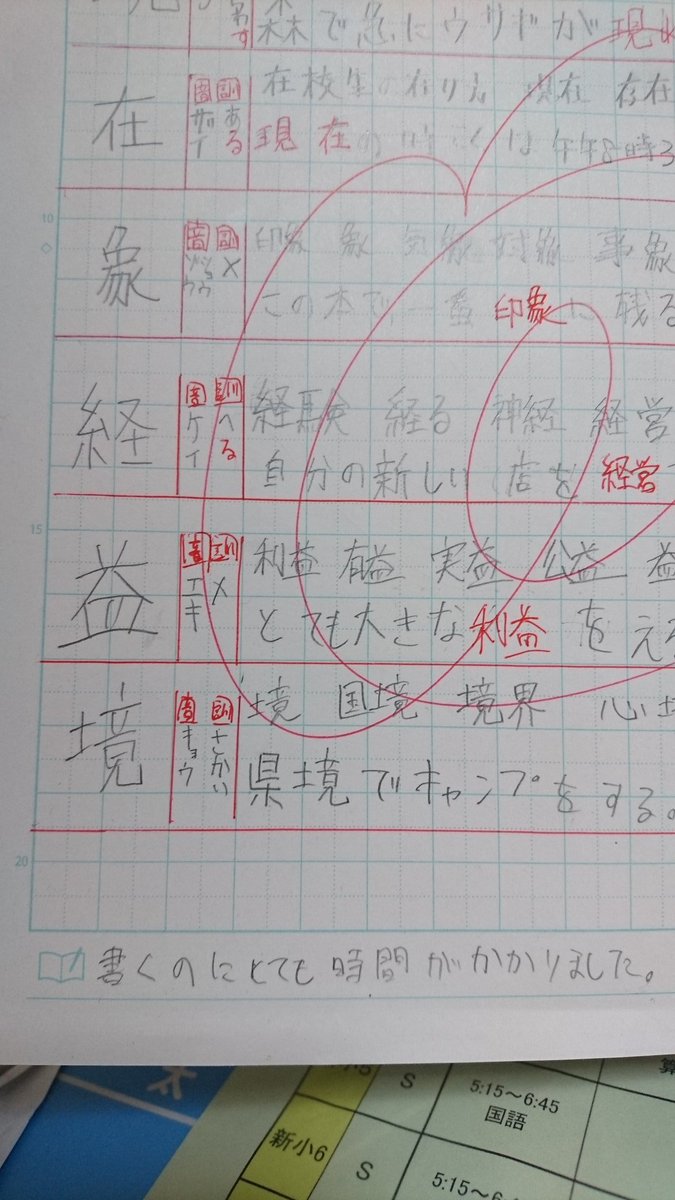 森で急にウサギが現
在
音 ザイ
訓 ある
在校生の在り方 現在 存在
現在の時こくは午午8時3
10
象
音 ゾウ ショウ
訓 ×
印象 象 気象 対象 事象
この本で一番印象に残る
経
音 ケイ
訓 へる
経験 経る 神経 経営
自分の新しい店を経営
15
益
音 エキ
訓 ×
利益 有益 実益 公益 益
とても大きな利益をえる
境
音 キョウ
訓 さかい
境 国境 境界 心境
県境でキャンプをする。
20
書くのにとても時間がかかりました。
小5
S
5:15～6:45
国語
算
新小6
S
5:15～6